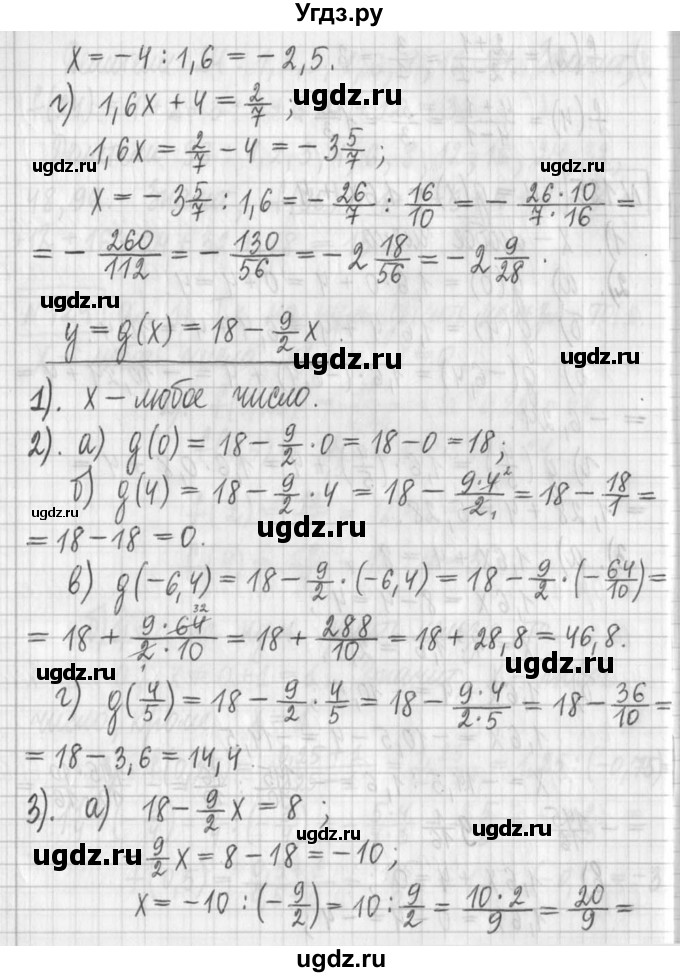 Угдз.ру
x = − 4 : 1,6 = − 2,5.
ugdz.ru
г) 1,6x + 4 = 2/7 ;
ugdz.ru
1,6x = 2/7 − 4 = − 3 5/7 ;
ugdz.ru ugdz.ru
x = − 3 5/7 : 1,6 = − 26/7 : 16/10 = − 26·10/7·16 =
= − 260/112 = − 130/56 = − 2 18/56 = − 2 9/28 .
ugdz.ru
y = g(x) = 18 − 9/2 x .
ugdz.ru ugdz.ru
1). x – любое число.
2). а) g(0) = 18 − 9/2 · 0 = 18 − 0 = 18 ;
б) g(4) = 18 − 9/2 · 4 = 18 − 9·4 2/2 1 = 18 − 18/1 =
ugdz.ru ugdz.ru
= 18 − 18 = 0.
ugdz.ru
в) g(−6,4) = 18 − 9/2 · (−6,4) = 18 − 9/2 · (− 64/10) =
= 18 + 9·64 32/2·10 1 = 18 + 288/10 = 18 + 28,8 = 46,8.
ugdz.ru ugdz.ru
г) g(4/5) = 18 − 9/2 · 4/5 = 18 − 9·4/2·5 = 18 − 36/10 =
= 18 − 3,6 = 14,4.
3). а) 18 − 9/2 x = 8 ;
ugdz.ru ugdz.ru
ugdz.ru
9/2 x = 8 − 18 = − 10 ;
x = − 10 : (− 9/2) = 10 : 9/2 = 10·2/9 = 20/9 =
ugdz.ru